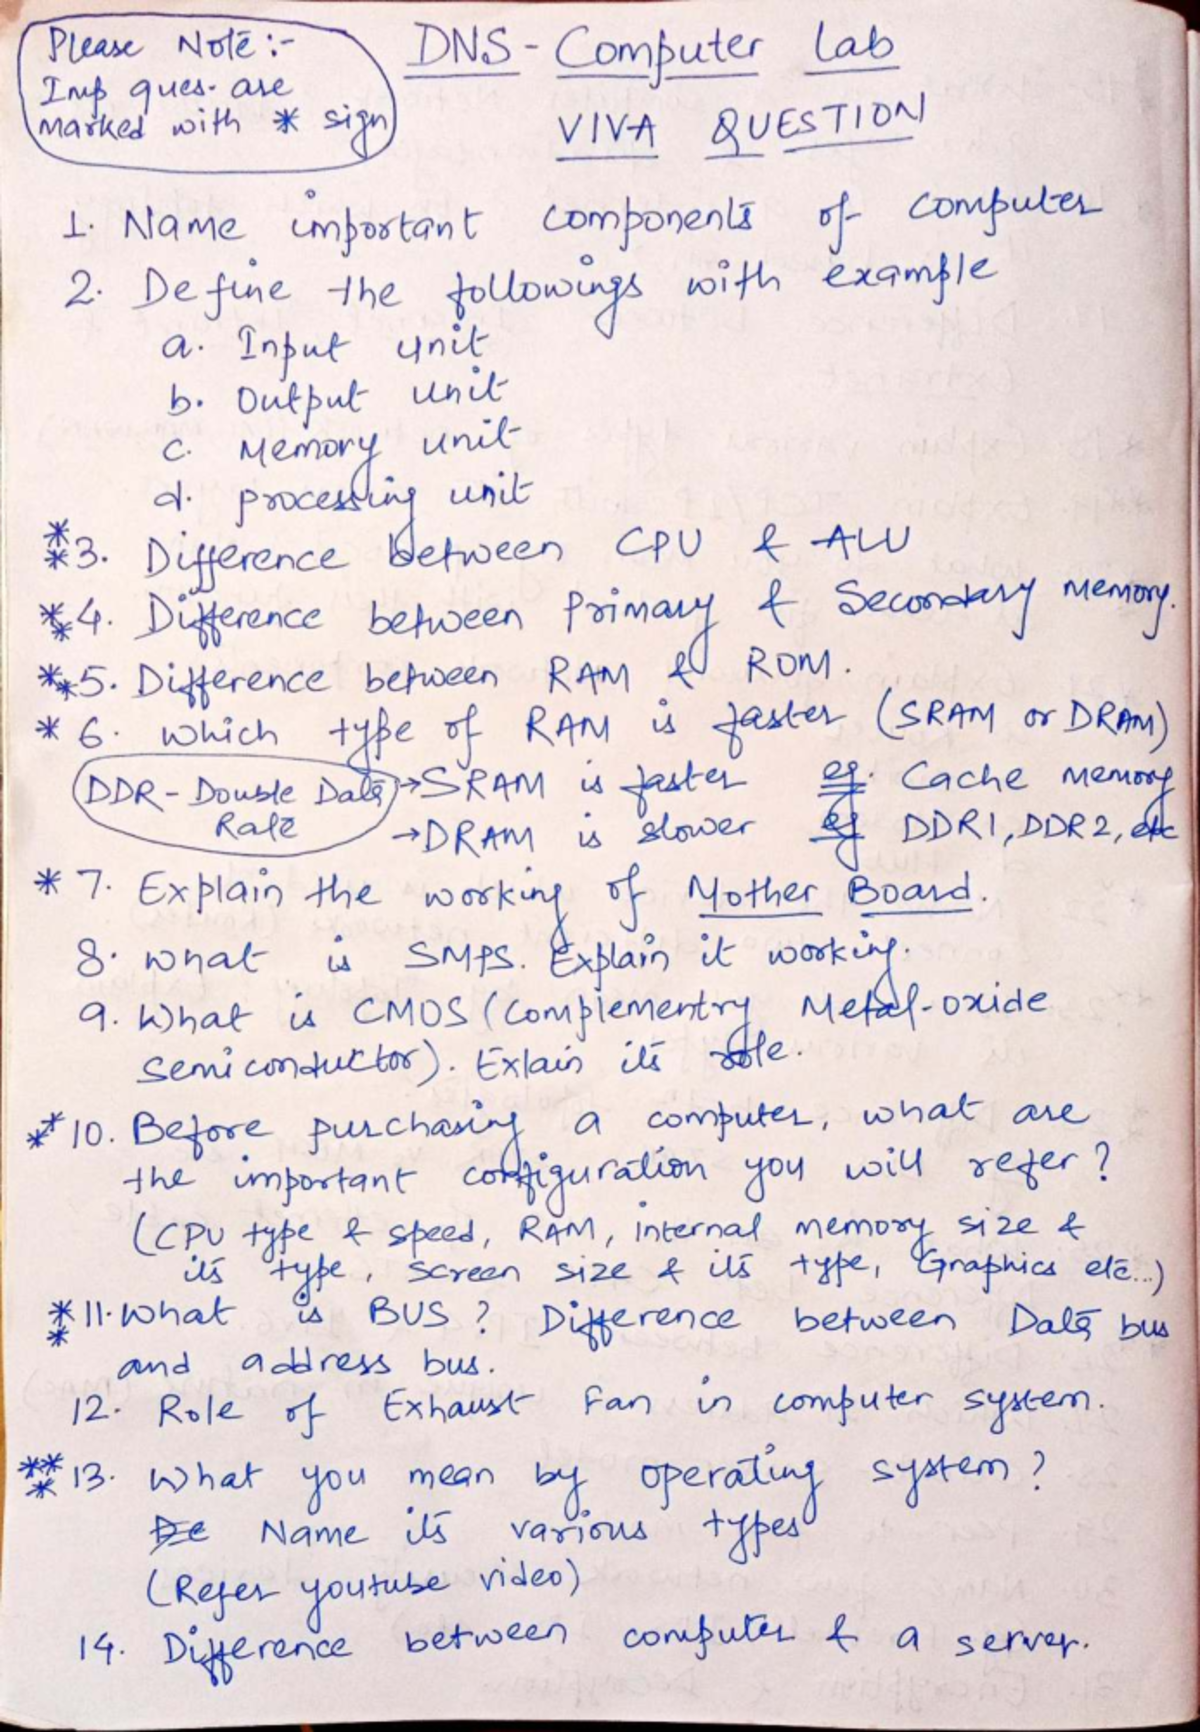 Please Note :-
Imp ques. are
marked with * sign
DNS - Computer Lab
VIVA QUESTION
1. Name important components of computer
2. Define the followings with example
a. Input unit
b. Output unit
c. Memory unit
d. processing unit
** 3. Difference between CPU & ALU
** 4. Difference between Primary & Secondary memory.
** 5. Difference between RAM & ROM.
* 6. Which type of RAM is faster (SRAM or DRAM)
DDR - Double Data Rate → SRAM is faster eg. Cache memory
→ DRAM is slower eg DDR1, DDR2, etc
* 7. Explain the working of Mother Board.
8. What is SMPS. Explain it working.
9. What is CMOS (Complementry Metal-oxide
semiconductor). Exlain its role.
** 10. Before purchasing a computer, what are
the important configuration you will refer?
(CPU type & speed, RAM, internal memory size &
its type, screen size & its type, Graphics etc...)
** 11. What is BUS? Difference between Data bus
and address bus.
12. Role of Exhaust Fan in computer system.
*** 13. What you mean by operating system?
Name its various types
(Refer youtube video)
14. Difference between computer & a server.